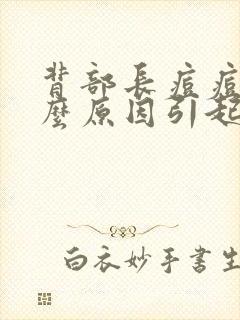 背部長痘痘
麼原因引起
白衣妙手書生